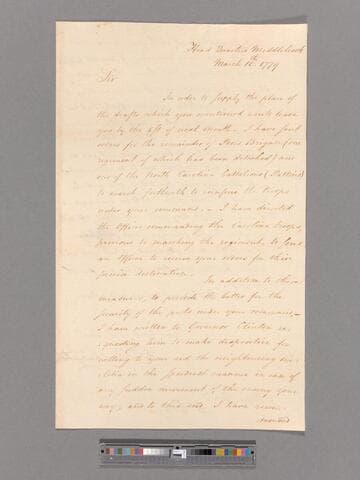 Head Quarters Middlebrook
March 15th 1779
Sir
In order to supply the place of
the drafts which you mentioned would leave
you by the 1st of next month. I have sent
orders for the remainder of Brigade (one
regiment of which has been detached) and
one of the North Carolina Battalions
to march forthwith to reinforce the troops
under your command. - I have directed
the Officer commanding the Carolina troops,
previous to marching the regiment, to send
an Officer to receive your orders for their
precise destination.
In addition to these
measures, to provide the better for the
security of the posts under your command -
I have written to Governor Clinton re-
questing him to make dispositions for
calling to your aid the neighbouring mi-
litia in the speediest manner in case of
any sudden movement of the enemy your
way; and to this end, I have recom-
mended